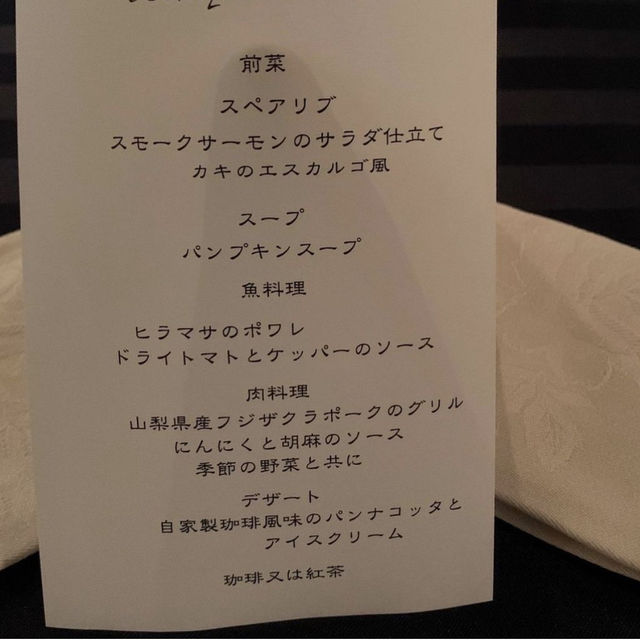 前菜
スペアリブ
スモークサーモンのサラダ仕立て
カキのエスカルゴ風
スープ
パンプキンスープ
魚料理
ヒラマサのポワレ
ドライトマトとケッパーのソース
肉料理
山梨県産フジザクラポークのグリル
にんにくと胡麻のソース
季節の野菜と共に
デザート
自家製珈琲風味のパンナコッタと
アイスクリーム
珈琲又は紅茶